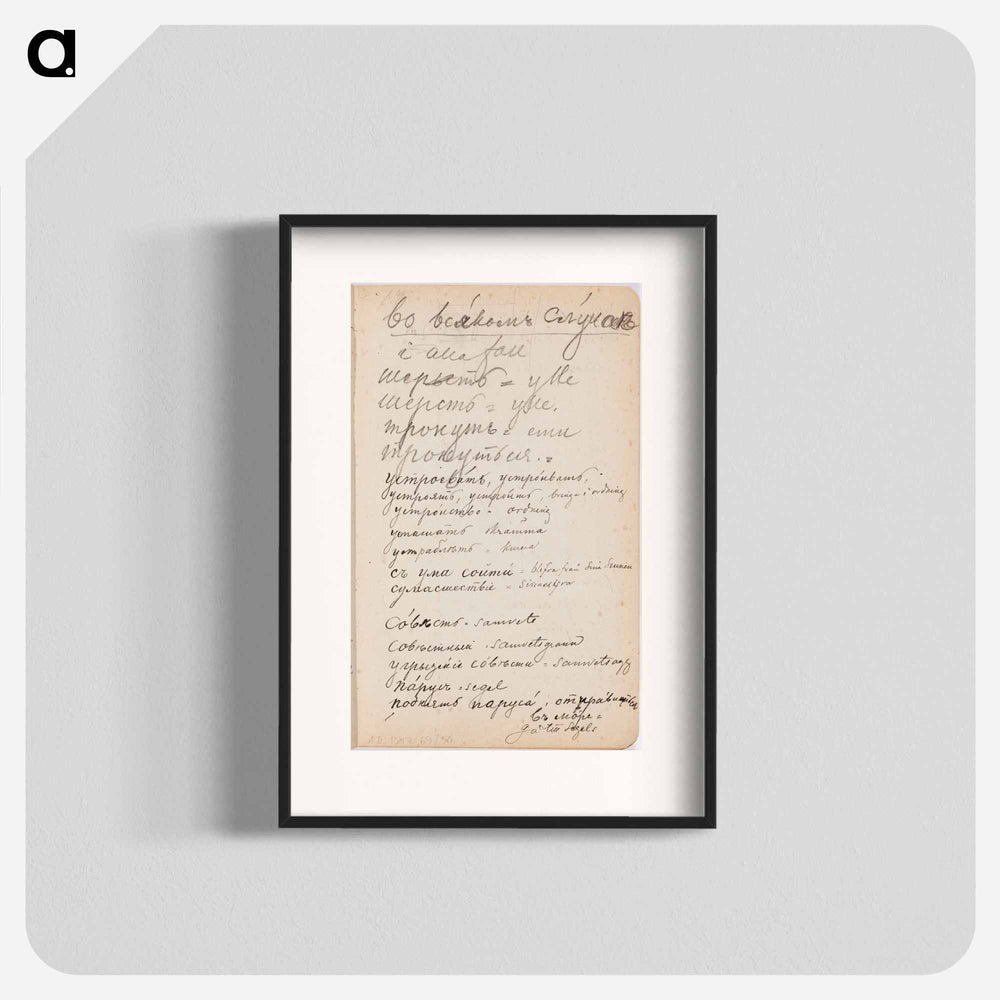 a.
во вся́комъ слу́чаѣ
i alla fall
шерысть = ylle
шерсть = ylle.
тронуть =
тронуться. =
устроева́ть, устро́ивать,
устроять, устро́ить, bringa i ordning
устро́йство = ordning
kräma
с ума сойти́ =
сумасшествіе =
Со́вѣсть = samvete
совѣстный = samvetsgrann
угрызе́ніе со́вѣсти = samvetsagg
па́русъ = segel
поднять паруса́, отправиться
въ мо́ре =
gå till segels